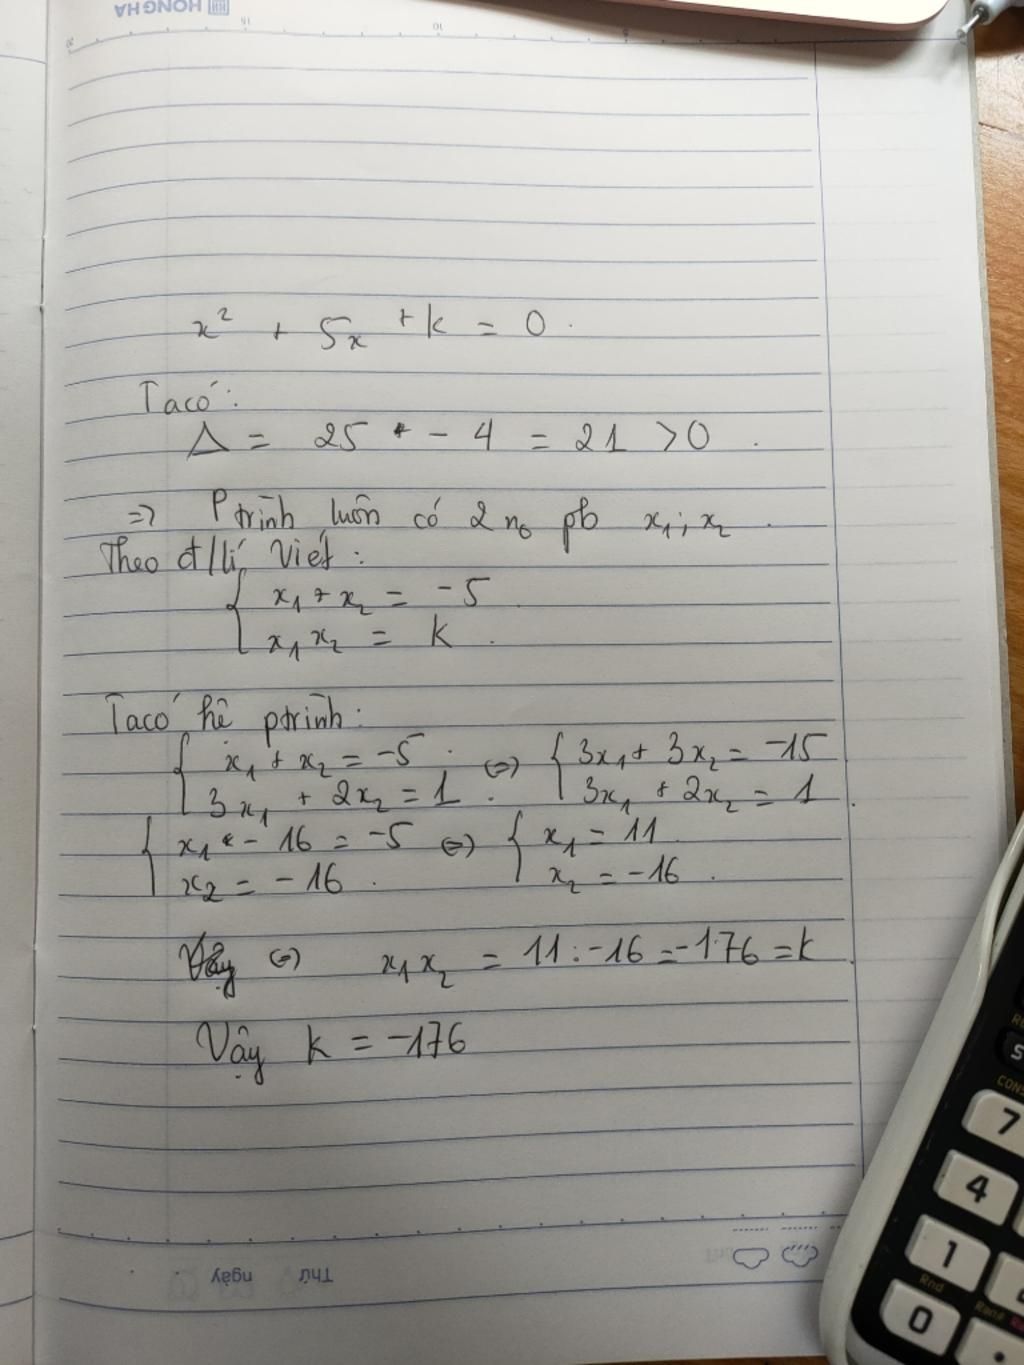 HONG HA
15
10
5
20
x² + 5x + k = 0.
Ta có:
Δ = 25 - 4 = 21 > 0.
=> Ptrình luôn có 2 no pb x₁; x₂.
Theo đ/lí Viét:
{ x₁ + x₂ = -5
x₁ x₂ = k.
Ta có hê ptrình:
{ x₁ + x₂ = -5 <=> { 3x₁ + 3x₂ = -15
3x₁ + 2x₂ = 1. 3x₁ + 2x₂ = 1.
{ x₁ - 16 = -5 <=> { x₁ = 11
x₂ = -16. x₂ = -16.
Vậy <=> x₁ x₂ = 11 . -16 = -176 = k.
Vậy k = -176
Thứ ngày
CONS
7
4
1
Rnd
0
Ran#